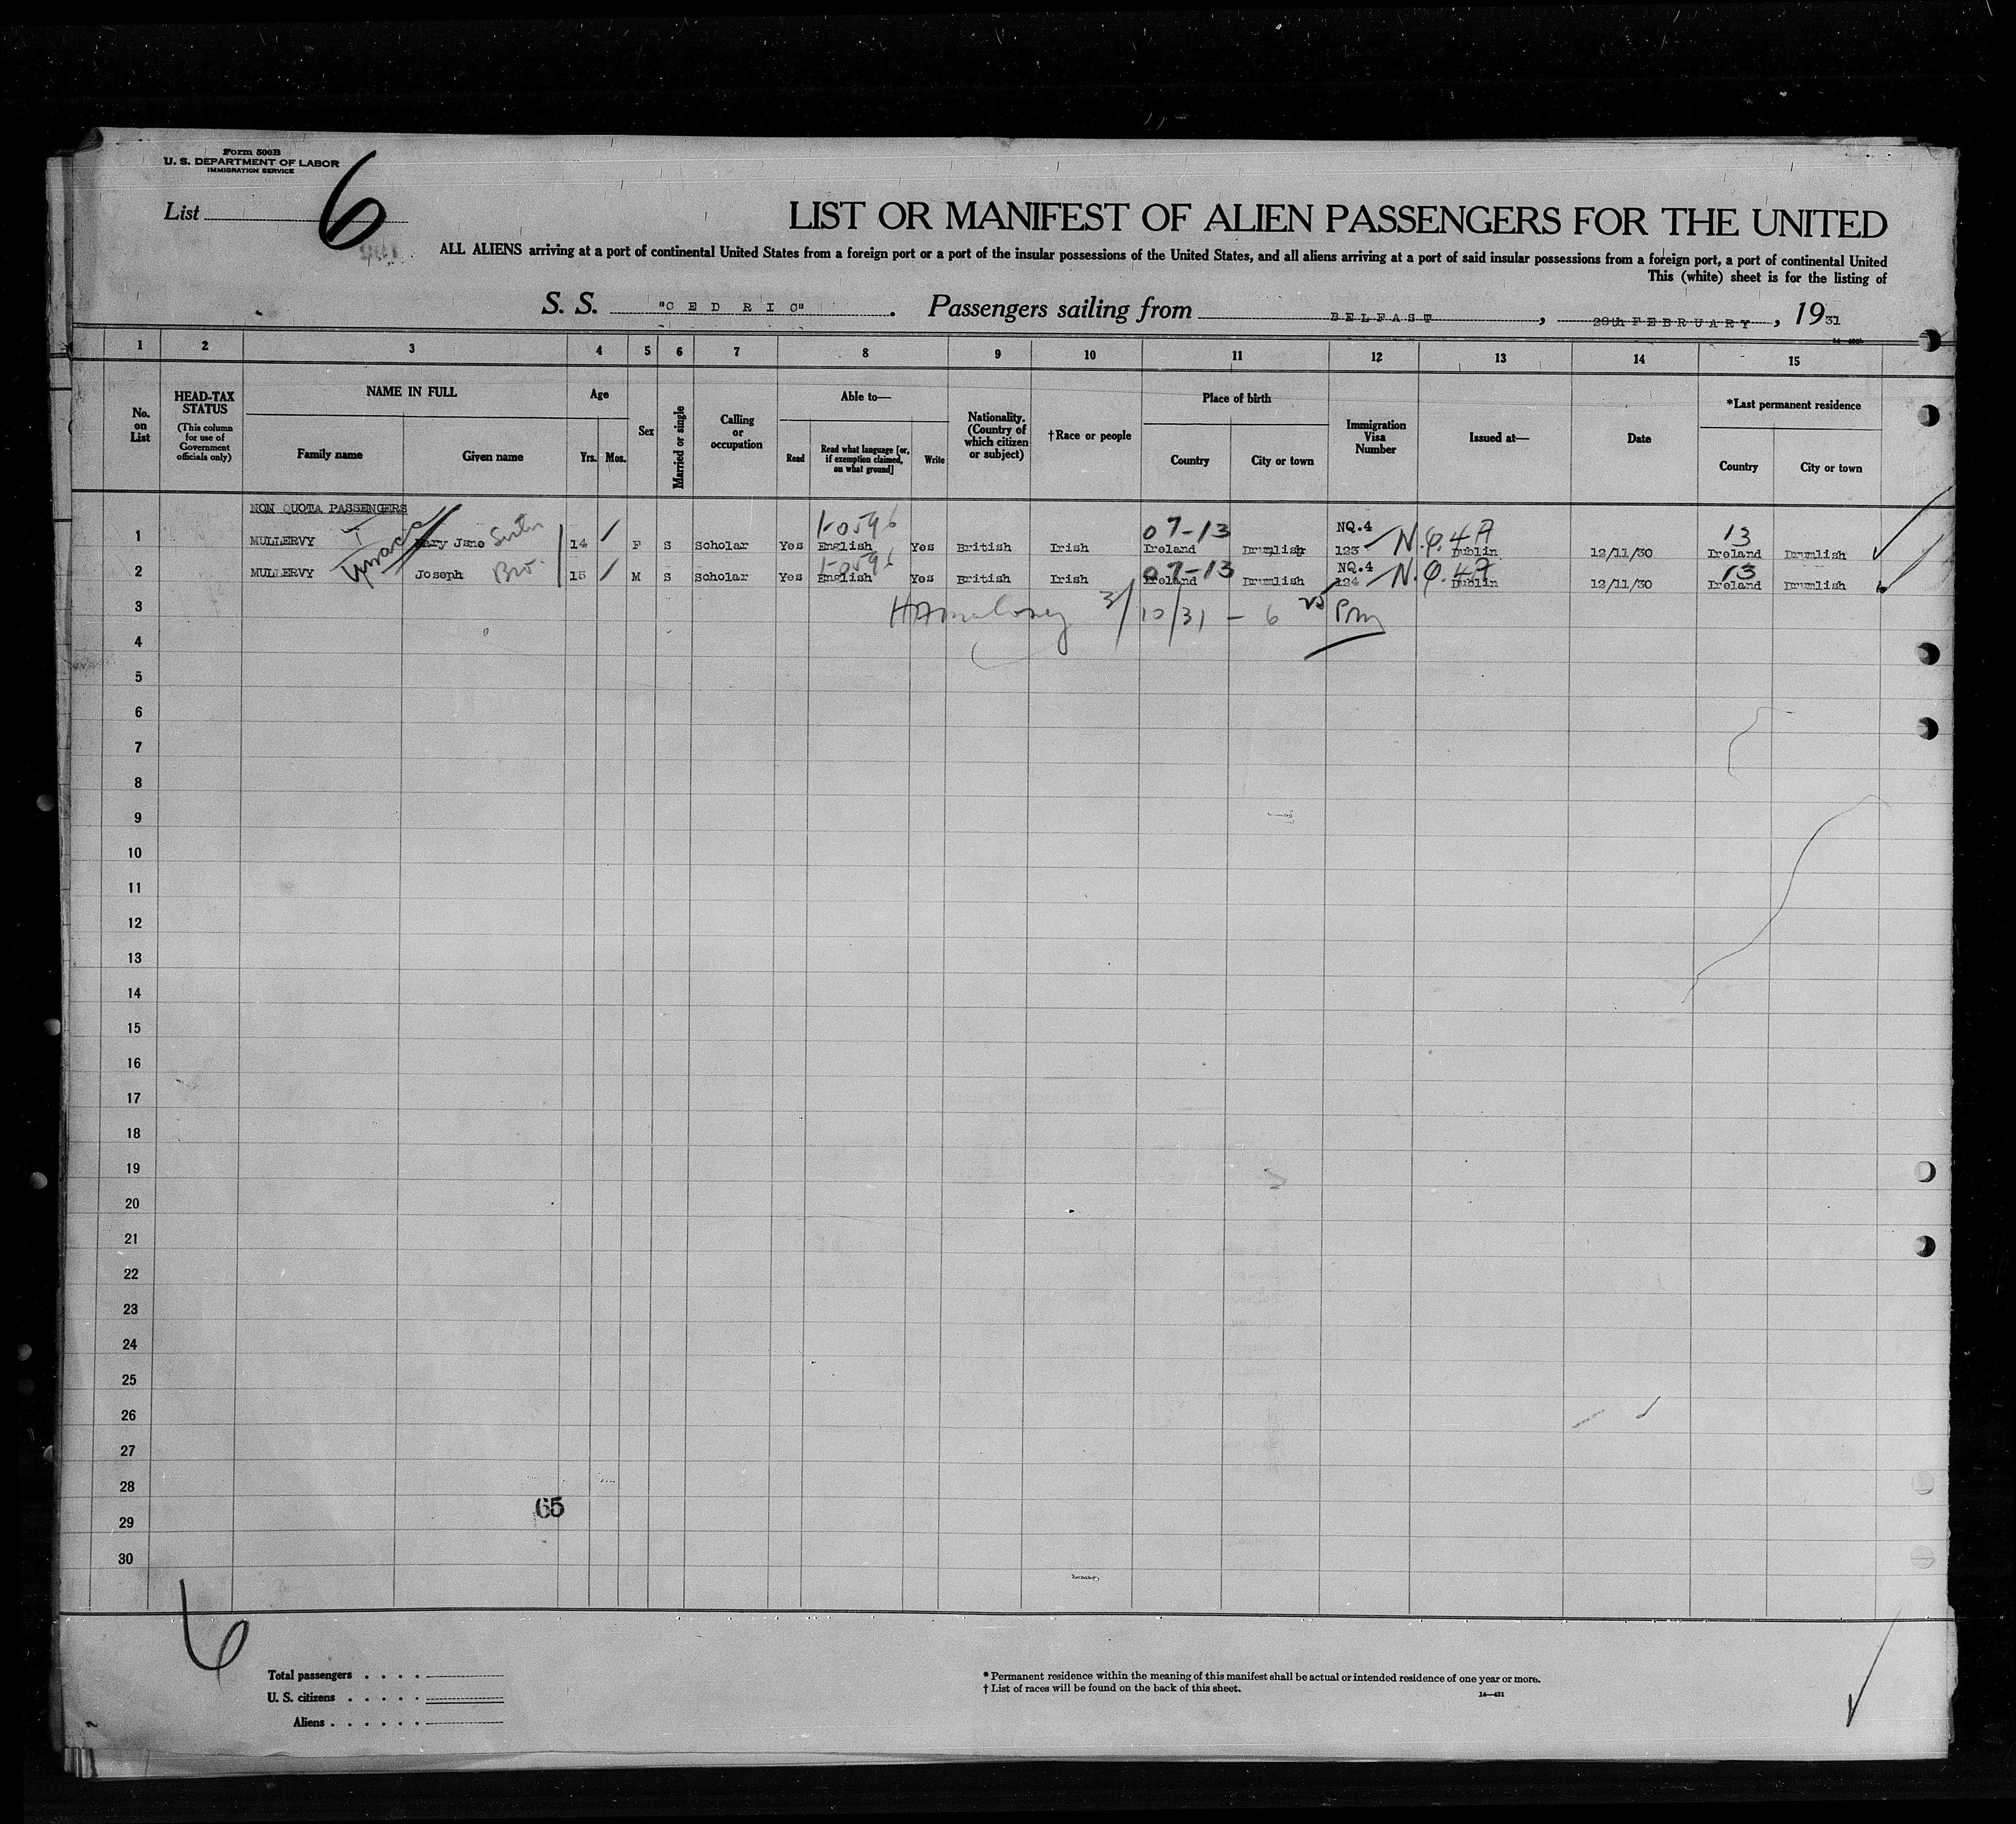 Form 500B
U. S. DEPARTMENT OF LABOR
IMMIGRATION SERVICE
List 6
LIST OR MANIFEST OF ALIEN PASSENGERS FOR THE UNITED
ALL ALIENS arriving at a port of continental United States from a foreign port or a port of the insular possessions of the United States, and all aliens arriving at a port of said insular possessions from a foreign port, a port of continental United
This (white) sheet is for the listing of
S. S. "CEDRIC". Passengers sailing from BELFAST, 28th FEBRUARY, 1931
1 2 3 4 5 6 7 8 9 10 11 12 13 14 15
No. on List
HEAD-TAX STATUS
(This column for use of Government officials only)
NAME IN FULL
Family name Given name
Age
Yrs. Mos.
Sex
Married or single
Calling or occupation
Able to—
Read
Read what language [or, if exemption claimed, on what ground]
Write
Nationality. (Country of which citizen or subject)
†Race or people
Place of birth
Country City or town
Immigration Visa Number
Issued at—
Date
*Last permanent residence
Country City or town
NON QUOTA PASSENGERS
1-0596 07-13 NQ.4 N.Q.4A 13
1 MULLERVY Mary Jane Sister 14 F S Scholar Yes English Yes British Irish Ireland Drumlish 123 Dublin 12/11/30 Ireland Drumlish
1-0596 07-13 NQ.4 N.Q.4A 13
2 MULLERVY Joseph Bro. 15 M S Scholar Yes English Yes British Irish Ireland Drumlish 124 Dublin 12/11/30 Ireland Drumlish
3 3/10/31 – 6 25 PM
4
5
6
7
8
9
10
11
12
13
14
15
16
17
18
19
20
21
22
23
24
25
26
27
28
65
29
30
6
Total passengers . . . .
U. S. citizens . . . . .
Aliens . . . . . .
* Permanent residence within the meaning of this manifest shall be actual or intended residence of one year or more.
† List of races will be found on the back of this sheet.
14—431